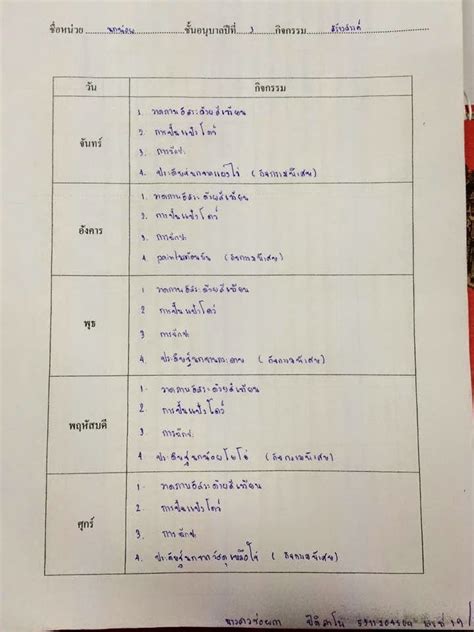 ชื่อหน่วย นกน้อย ชั้นอนุบาลปีที่ 3 กิจกรรม สร้างสรรค์
วัน กิจกรรม
จันทร์
1. วาดภาพอิสระด้วยสีเทียน
2. การปั้นแป้งโดว์
3. การฉีกปะ
4. ประดิษฐ์นกจากแผงไข่ (กิจกรรมพิเศษ)
อังคาร
1. วาดภาพอิสระด้วยสีเทียน
2. การปั้นแป้งโดว์
3. การฉีกปะ
4. (กิจกรรมพิเศษ)
พุธ
1. วาดภาพอิสระด้วยสีเทียน
2 การปั้นแป้งโดว์
3 การฉีกปะ
4. ประดิษฐ์นกจานกระดาษ (กิจกรรมพิเศษ)
พฤหัสบดี
1. วาดภาพอิสระด้วยสีเทียน
2 การปั้นแป้งโดว์
3. การฉีกปะ
4. ประดิษฐ์นกน้อยโยโย่ (กิจกรรมพิเศษ)
ศุกร์
1. วาดภาพอิสระด้วยสีเทียน
2. การปั้นแป้งโดว์
3. การฉีกปะ
4. ประดิษฐ์นกจากวัสดุเหลือใช้ (กิจกรรมพิเศษ)